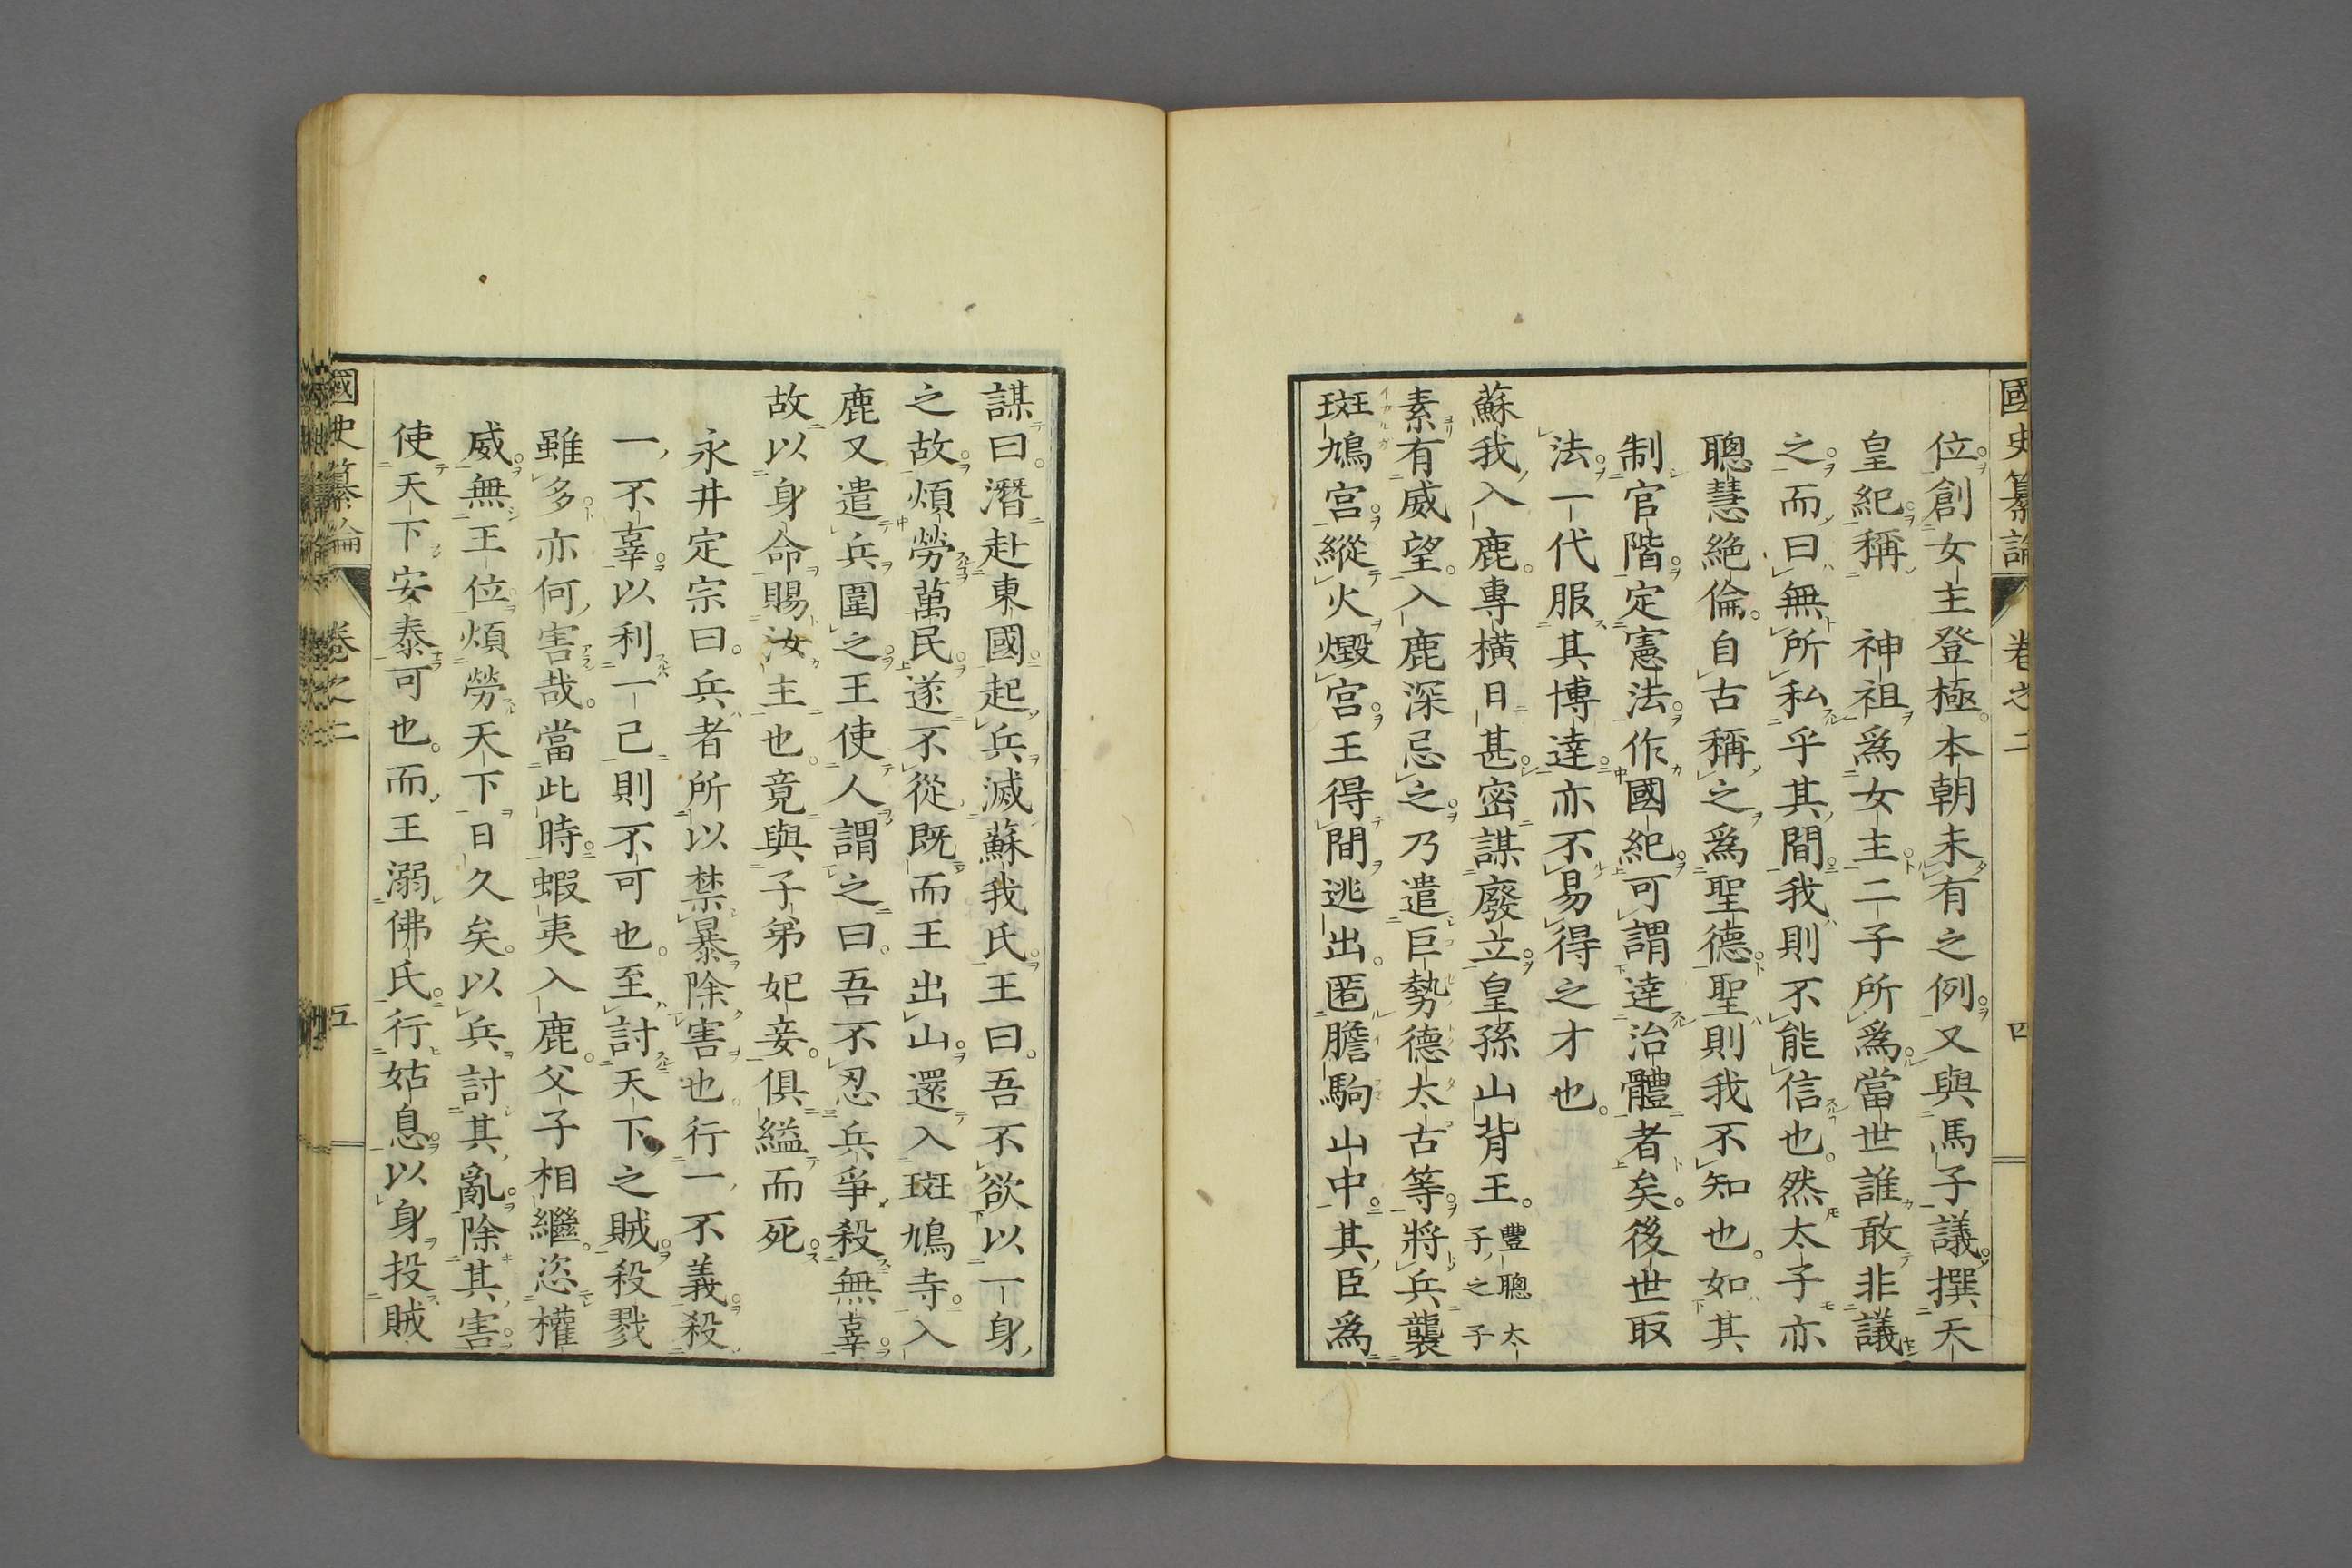 國史纂論 卷之二 四
位創女主登極。本朝未有之例。又與馬子議。撰天
皇紀稱 神祖爲女主。二子所爲。當世誰敢非議
之。而曰無所私乎其間。我則不能信也。然太子亦
聰慧絶倫。自古稱之爲聖德。聖則我不知也。如其
制官階。定憲法。作國紀。可謂達治體者矣。後世取
法一代服其博達。亦不易得之才也。
蘇我入鹿。專橫日甚。密謀廢立皇孫山背王。豐聰太子之子
素有威望。入鹿深忌之。乃遣巨勢德太古等。將兵襲
斑鳩宮。縱火燬宮。王得間逃出。匿膽駒山中。其臣爲
謀曰。潛赴東國。起兵滅蘇我氏。王曰。吾不欲以一身
之故。煩勞萬民。遂不從。既而王出山。還入斑鳩寺。入
鹿又遣兵圍之。王使人謂之曰。吾不忍兵爭殺無辜。
故以身命賜汝主也。竟與子弟妃妾。俱縊而死。
永井定宗曰。兵者所以禁暴除害也。行一不義。殺
一不辜。以利一己。則不可也。至討天下之賊。殺戮
雖多。亦何害哉。當此時。蝦夷入鹿。父子相繼。恣權
威。無王位。煩勞天下。日久矣。以兵討其亂。除其害。
使天下安泰可也。而王溺佛氏。行姑息。以身投賊
國史纂論 卷之二 五